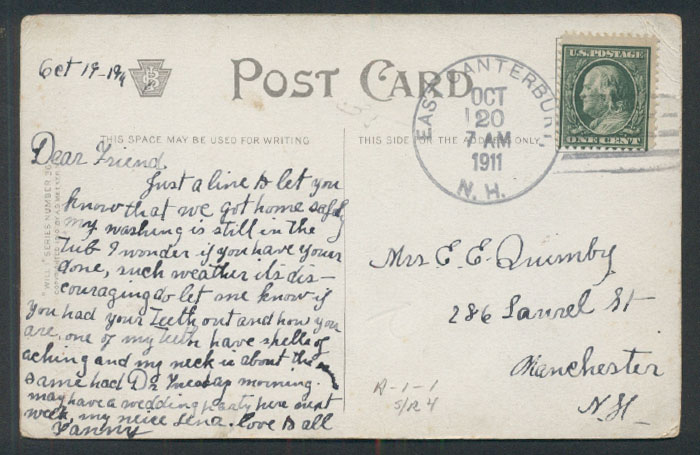 Oct 19-1911
POST CARD
THIS SPACE MAY BE USED FOR WRITING
THIS SIDE FOR THE ADDRESS ONLY
EAST CANTERBURY
OCT
20
7 AM
1911
N. H.
U.S. POSTAGE
ONE CENT
Dear Friend
Just a line to let you
know that we got home safely
my washing is still in the
Tub I wonder if you have your
done, such weather its dis-
couraging do let me know if
you had your Teeth out and how you
are, one of my teeth have spells of
aching and my neck is about the
same had Dr morning.
may have a wedding party here next
week, my neice Lena. love to all
Fanny
Mrs E. E. Quimby
286 Laurel St
Manchester
N.H.
A-1-1
5/124